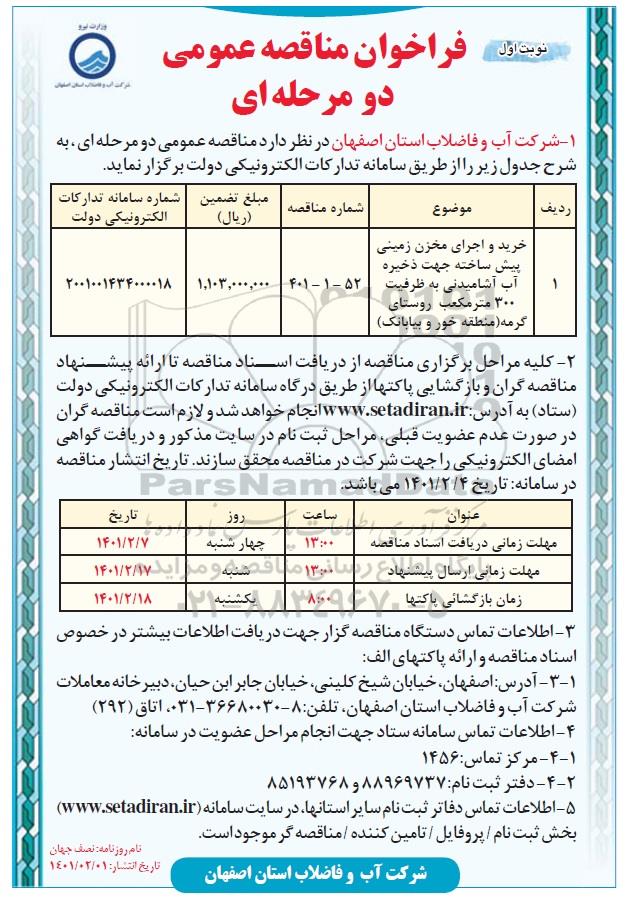 وزارت نیرو
شرکت آب و فاضلاب استان اصفهان
نوبت اول
فراخوان مناقصه عمومی
دو مرحله ای
۱-شرکت آب و فاضلاب استان اصفهان در نظر دارد مناقصه عمومی دو مرحله ای ، به
شرح جدول زیر را از طریق سامانه تدارکات الکترونیکی دولت برگزار نماید.
ردیف	موضوع	شماره مناقصه	مبلغ تضمین (ریال)	شماره سامانه تدارکات الکترونیکی دولت
۱	خرید و اجرای مخزن زمینی پیش ساخته جهت ذخیره آب آشامیدنی به ظرفیت ۳۰۰ مترمکعب روستای گرمه(منطقه خور و بیابانک)	۵۲ – ۱ – ۴۰۱	۱,۱۰۳,۰۰۰,۰۰۰	۲۰۰۱۰۰۱۴۳۴۰۰۰۰۱۸
۲- کلیه مراحل برگزاری مناقصه از دریافت اسناد مناقصه تا ارائه پیشنهاد
مناقصه گران و بازگشایی پاکتها از طریق درگاه سامانه تدارکات الکترونیکی دولت
(ستاد) به آدرس:www.setadiran.ir انجام خواهد شد و لازم است مناقصه گران
در صورت عدم عضویت قبلی، مراحل ثبت نام در سایت مذکور و دریافت گواهی
امضای الکترونیکی را جهت شرکت در مناقصه محقق سازند. تاریخ انتشار مناقصه
در سامانه: تاریخ ۱۴۰۱/۲/۴ می باشد.
عنوان	ساعت	روز	تاریخ
مهلت زمانی دریافت اسناد مناقصه	۱۳:۰۰	چهار شنبه	۱۴۰۱/۲/۷
مهلت زمانی ارسال پیشنهاد	۱۳:۰۰	شنبه	۱۴۰۱/۲/۱۷
زمان بازگشائی پاکتها	۸:۰۰	یکشنبه	۱۴۰۱/۲/۱۸
ParsNamadData
مرکز فرآوری اطلاعات پارس نماد داده ها
پایگاه اطلاع رسانی مناقصه و مزایده
۰۲۱-۸۸۳۴۹۶۷۰-۵
۳- اطلاعات تماس دستگاه مناقصه گزار جهت دریافت اطلاعات بیشتر در خصوص
اسناد مناقصه و ارائه پاکتهای الف:
۳-۱- آدرس: اصفهان، خیابان شیخ کلینی، خیابان جابر ابن حیان، دبیرخانه معاملات
شرکت آب و فاضلاب استان اصفهان، تلفن: ۸-۳۶۶۸۰۰۳۰-۰۳۱، اتاق (۲۹۲)
۴-اطلاعات تماس سامانه ستاد جهت انجام مراحل عضویت در سامانه:
۴-۱- مرکز تماس: ۱۴۵۶
۴-۲- دفتر ثبت نام: ۸۸۹۶۹۷۳۷ و ۸۵۱۹۳۷۶۸
۵-اطلاعات تماس دفاتر ثبت نام سایر استانها، در سایت سامانه (www.setadiran.ir)
بخش ثبت نام / پروفایل / تامین کننده / مناقصه گر موجود است.
نام روزنامه: نصف جهان
تاریخ انتشار: ۱۴۰۱/۰۲/۰۱
شرکت آب و فاضلاب استان اصفهان